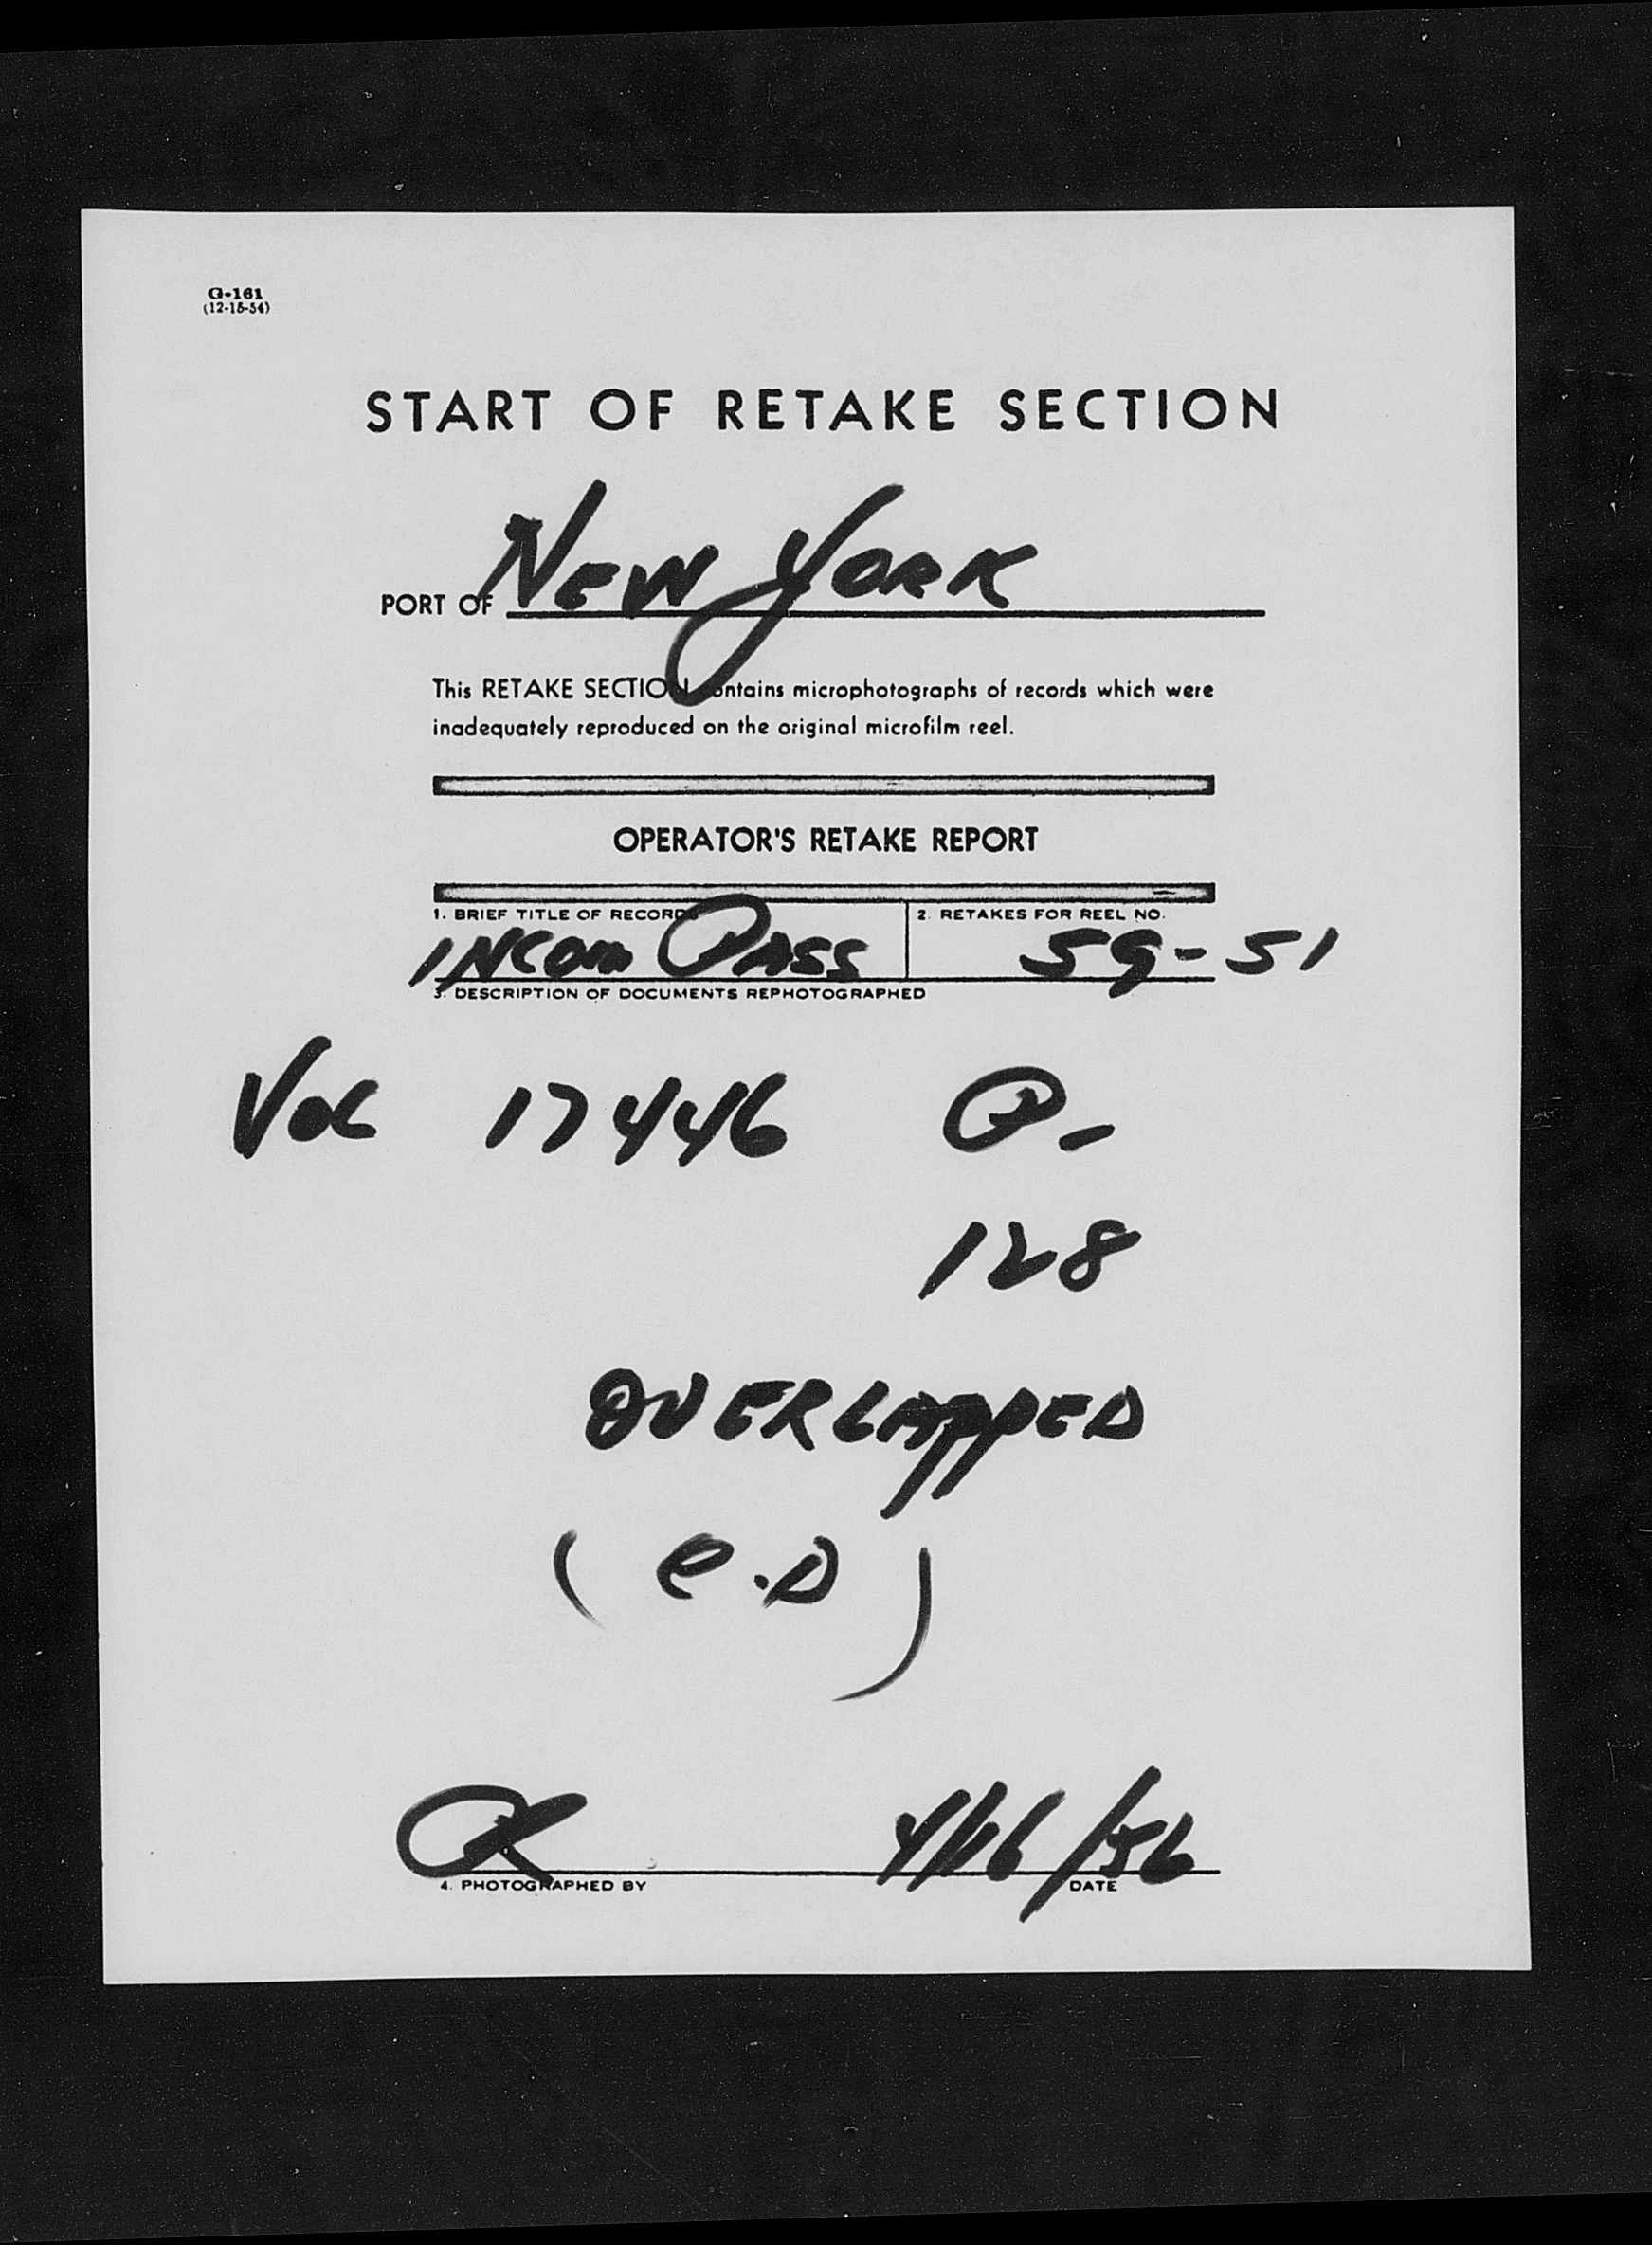 G-161
(12-15-54)
START OF RETAKE SECTION
PORT OF NEW YORK
This RETAKE SECTION contains microphotographs of records which were
inadequately reproduced on the original microfilm reel.
OPERATOR'S RETAKE REPORT
1. BRIEF TITLE OF RECORDS 2. RETAKES FOR REEL NO.
INCOM PASS 59-51
3. DESCRIPTION OF DOCUMENTS REPHOTOGRAPHED
Vol 17446 P-
128
OVERLAPPED
(e.D)
4/16/56
4. PHOTOGRAPHED BY DATE